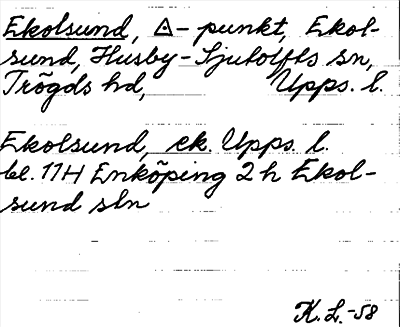 Ekolsund, △-punkt, Ekol-
sund, Husby-Sjutolfts sn,
Trögds hd, Upps. l.
Ekolsund, ek. Upps. l.
bl. 11H Enköping 2 h Ekol-
sund sln
K. L. -58